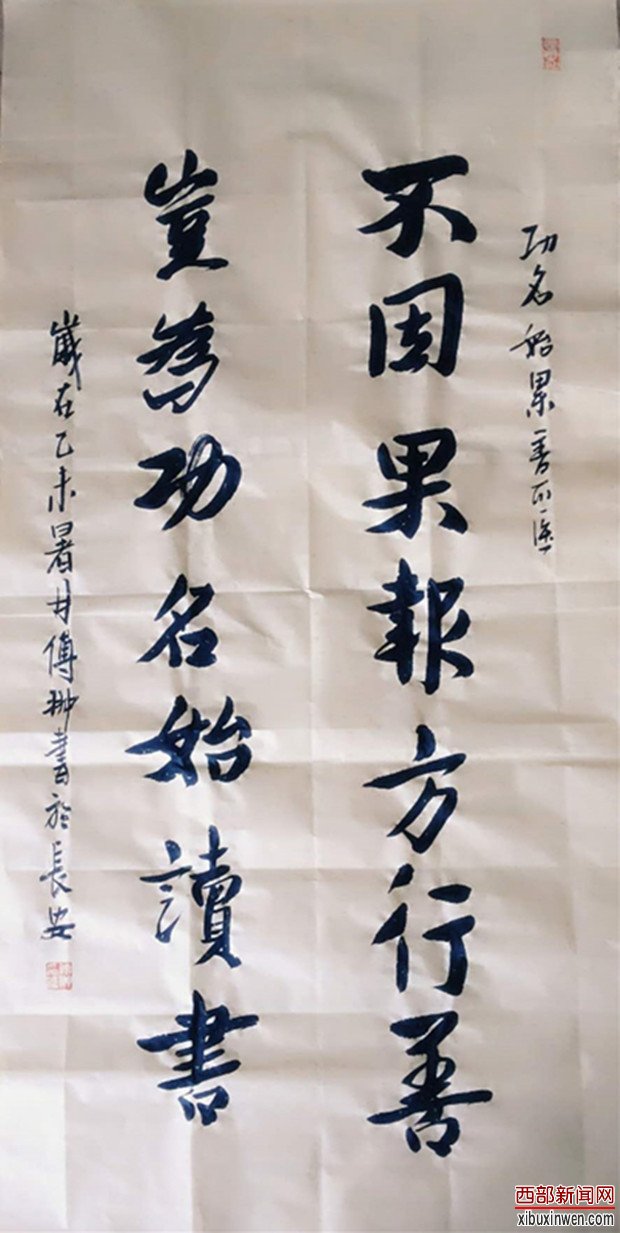 功名始累善
不因果報方行善
豈為功名始讀書
歲在乙未暑月傅翀書於長安
西部新闻网
xibuxinwen.com